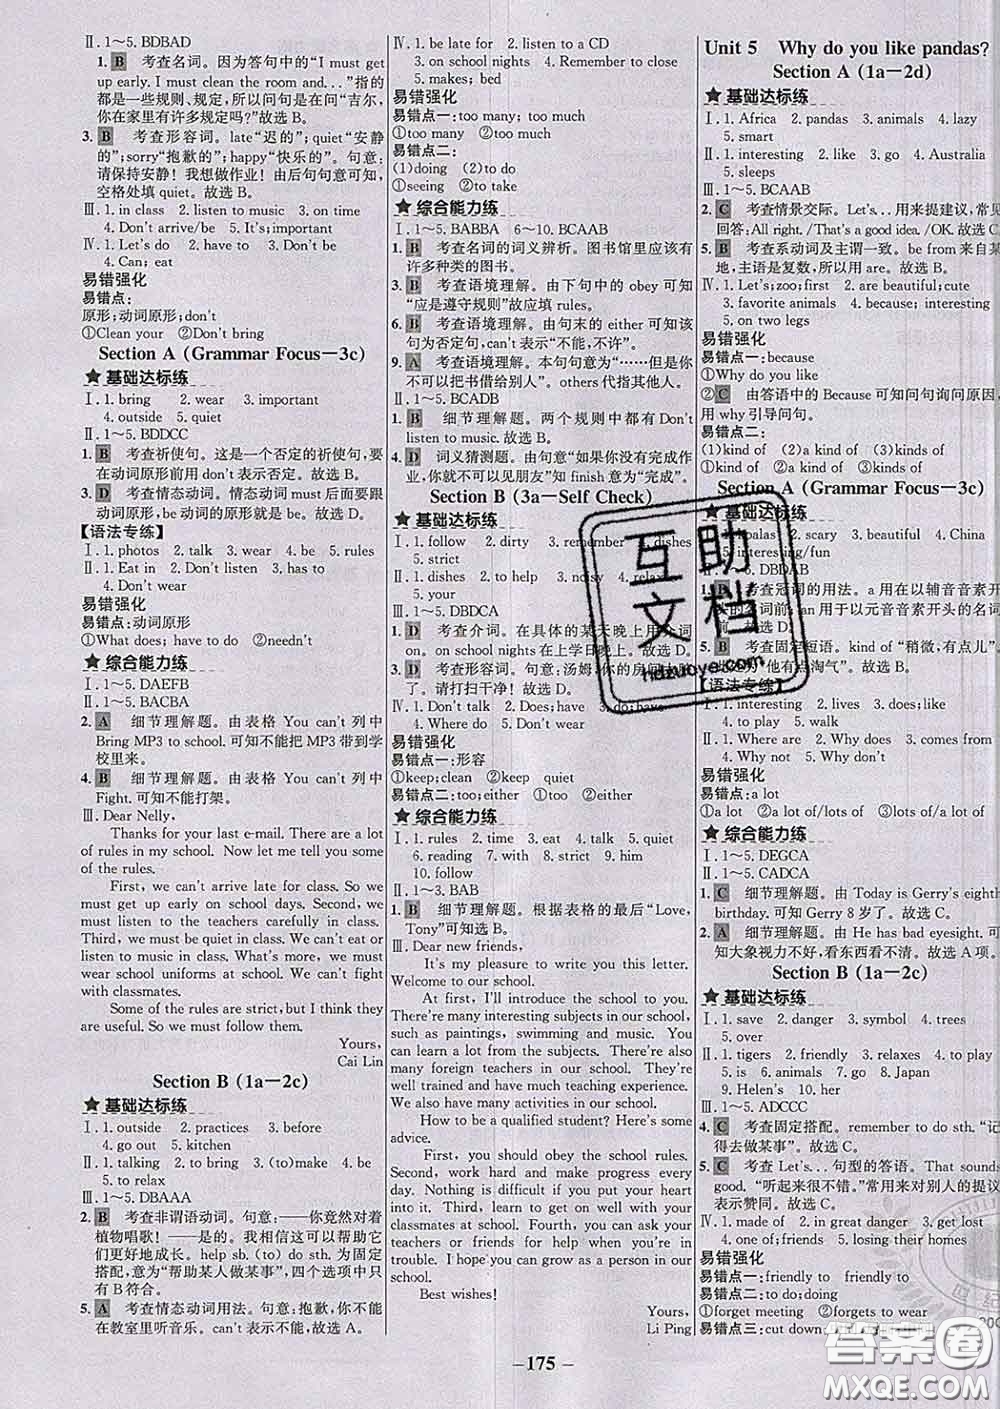 Ⅱ. 1～5. BDBAD
1. B 考查名词。因为答句中的“I must get up early. I must clean the room and...”指的都是一些规则、规定,所以问句是在问“吉尔,你在家里有许多规定吗?”故选B。
3. B 考查形容词。late“迟的”;quiet“安静的”;sorry“抱歉的”;happy“快乐的”。句意:请保持安静!我想做作业!由后句句意可知,空格处填 quiet。故选B。
Ⅲ. 1. in class 2. listen to music 3. on time
4. Don't arrive/be 5. It's; important
Ⅳ. 1. Let's do 2. have to 3. Don't be
4. Can; eat
易错强化
易错点:
原形;动词原形;don't
①Clean your ②Don't bring
Section A (Grammar Focus—3c)
★ 基础达标练
Ⅰ. 1. bring 2. wear 3. important
4. outside 5. quiet
Ⅱ. 1～5. BDDCC
1. B 考查祈使句。这是一个否定的祈使句,要在动词原形前用 don't 表示否定。故选B。
3. D 考查情态动词。情态动词 must 后面要跟动词原形,be 动词的原形就是 be。故选D。
【语法专练】
Ⅰ. 1. photos 2. talk 3. wear 4. be 5. rules
Ⅱ. 1. Eat in 2. Don't be 3. has to
4. Don't wear
易错强化
易错点:动词原形
①What does; have to do ②needn't
★ 综合能力练
Ⅰ. 1～5. DAEFB
Ⅱ. 1～5. BACBA
2. A 细节理解题。由表格 You can't 列中 Bring MP3 to school. 可知不能把 MP3 带到学校里来。
4. B 细节理解题。由表格 You can't 列中 Fight. 可知不能打架。
Ⅲ. Dear Nelly,
Thanks for your last e-mail. There are a lot of rules in my school. Now let me tell you some of the rules.
First, we can't arrive late for class. So we must get up early on school days. Second, we must listen to the teachers carefully in class. Third, we must be quiet in class. We can't eat or listen to music in class. What's more, we must wear school uniforms at school. We can't fight with classmates.
Some of the rules are strict, but I think they are useful. So we must follow them.
Yours,
Cai Lin
Section B (1a—2c)
★ 基础达标练
Ⅰ. 1. outside 2. practices 3. before
4. go out 5. kitchen
Ⅱ. 1. talking 2. to bring 3. (to)make 4. be
5. relaxing
Ⅲ. 1～5. DBAAA
2. B 考查非谓语动词。句意:——你竟然对着植物唱歌!——是的。我相信这可以帮助它们更好地成长。help sb. (to) do sth. 为固定搭配,意为“帮助某人做某事”,四个选项中只有B符合。
5. A 考查情态动词用法。句意:抱歉,你不能在教室里听音乐。can't 表示禁止。故选A。
Ⅳ. 1. be late for 2. listen to a CD
3. on school nights 4. Remember to close
5. makes; bed
易错强化
易错点一:too many; too much
①too many ②too much
易错点二:
(1)doing (2)to do
①seeing ②to take
★ 综合能力练
Ⅰ. 1～5. BABBA 6～10. BCABB
1. B 考查名词的词义辨析。图书馆里应该有许多种类的图书。
3. B 考查语境理解。由下句中的 obey 可知“应是遵守规则”故应填 rules。
6. B 考查语境理解。由句末的 either 可知该句为否定句,can't 表示“不能,不许”。
9. A 考查语境理解。本句句意为“……但是你不可以把书借给别人”。others 代指其他人。
Ⅱ. 1～5. BCADB
1. B 细节理解题。两个规则中都有 Don't listen to music. 故选B。
4. D 词义猜测题。由句意“如果你没有完成作业,你就不可以见朋友”知 finish 意为“完成”。
Section B (3a—Self Check)
★ 基础达标练
Ⅰ. 1. follow 2. dirty 3. remember 4. dishes
5. strict
Ⅱ. 1. dishes 2. to help 3. noisy 4. relaxes
5. your
Ⅲ. 1～5. DBDCA
1. D 考查介词。在具体的某天晚上用介词 on。on school nights 在上学日晚上。故选D。
3. D 考查形容词。句意:汤姆,你的房间太脏了。请打扫干净!故选D。
Ⅳ. 1. Don't talk 2. Does; have 3. do; have
4. Where do 5. Don't wear
易错强化
易错点一:形容
①keep; clean ②keep quiet
易错点二:too; either ①too ②either
★ 综合能力练
Ⅰ. 1. rules 2. time 3. eat 4. talk 5. quiet
6. reading 7. with 8. strict 9. him
10. follow
Ⅱ. 1～3. BAB
1. B 细节理解题。根据表格的最后“Love, Tony”可知选B。
Ⅲ. Dear new friends,
It's my pleasure to write you this letter. Welcome to our school.
At first, I'll introduce the school to you. There're many interesting subjects in our school, such as paintings, swimming and music. You can learn a lot from the subjects. There're also many foreign teachers in our school. They're well trained and have much teaching experience. We also have many activities in our school.
How to be a qualified student? Here's some advice.
First, you should obey the school rules. Second, work hard and make progress every day. Nothing is difficult if you put your heart into it. Third, learn to get on well with your classmates at school. Fourth, you can ask teachers or friends for help when you're in trouble. I hope you can grow as a person in our school.
Best wishes!
Yours,
Li Ping
Unit 5 Why do you like pandas?
Section A (1a—2d)
★ 基础达标练
Ⅰ. 1. Africa 2. pandas 3. animals 4. lazy
5. smart
Ⅱ. 1. interesting 2. like 3. go 4. Australia
5. sleeps
Ⅲ. 1～5. BCAAB
2. C 考查情景交际。Let's... 用来提建议,常见回答:All right. /That's a good idea. /OK. 故选C
5. B 考查系动词及主谓一致。be from 来自某地,主语是复数,所以用 are。故选B。
Ⅳ. 1. Let's; zoo; first 2. are beautiful; cute
3. favorite animals 4. because; interesting
5. on two legs
易错强化
易错点一:because
①Why do you like
②C 由答语中的 Because 可知问句询问原因,用 why 引导问句。
易错点二:
(1)kind of (2)a kind of (3)kinds of
①kind of ②a kind of ③kinds of
Section A (Grammar Focus—3c)
★ 基础达标练
koalas 2. scary 3. beautiful 4. China
5. interesting/fun
DBDAB
考查冠词的用法。a 用在以辅音音素开头的名词前;an 用于以元音音素开头的名词前。故选D。
考查固定短语。kind of“稍微,有点儿”。此处意为“他有点淘气”。故选B。
【语法专练】
Ⅰ. 1. interesting 2. lives 3. does 4. want
4. to play 5. walk
Ⅱ. 1. Where are 2. Why does 3. comes from
4. Why not 5. Why don't
易错强化
易错点:a lot
①a lot ②a lot of/lots of ③lots of/a lot of
★ 综合能力练
Ⅰ. 1～5. DEGCA
Ⅱ. 1～5. CADCA
1. C 细节理解题。由 Today is Gerry's eighth birthday. 可知 Gerry 8岁了。故选C。
2. A 细节理解题。由 He has bad eyesight. 可知大象视力不好,看东西看不清。故选A项。
Section B (1a—2c)
★ 基础达标练
Ⅰ. 1. save 2. danger 3. symbol 4. trees
5. over
Ⅱ. 1. tigers 2. friendly 3. relaxes 4. to play
5. is 6. are 7. to see 8. Japan
9. Helen's 10. her
Ⅲ. 1～5. ADCCC
4. C 考查固定搭配。remember to do sth. “记得去做某事”。故选C。
5. C 考查 Let's... 句型的答语。That sounds good. “听起来很不错。”常用来对别人的提议表示赞同。故选C。
Ⅳ. 1. made of 2. in great danger 3. get lost
4. one of; friends 5. losing their homes
易错强化
易错点一:friendly to friendly to
易错点二:to do; doing
①forget meeting ②forgets to wear
易错点三:cut down
—175—
互助文档
hdzuoye.com
答案圈
MXQE.COM